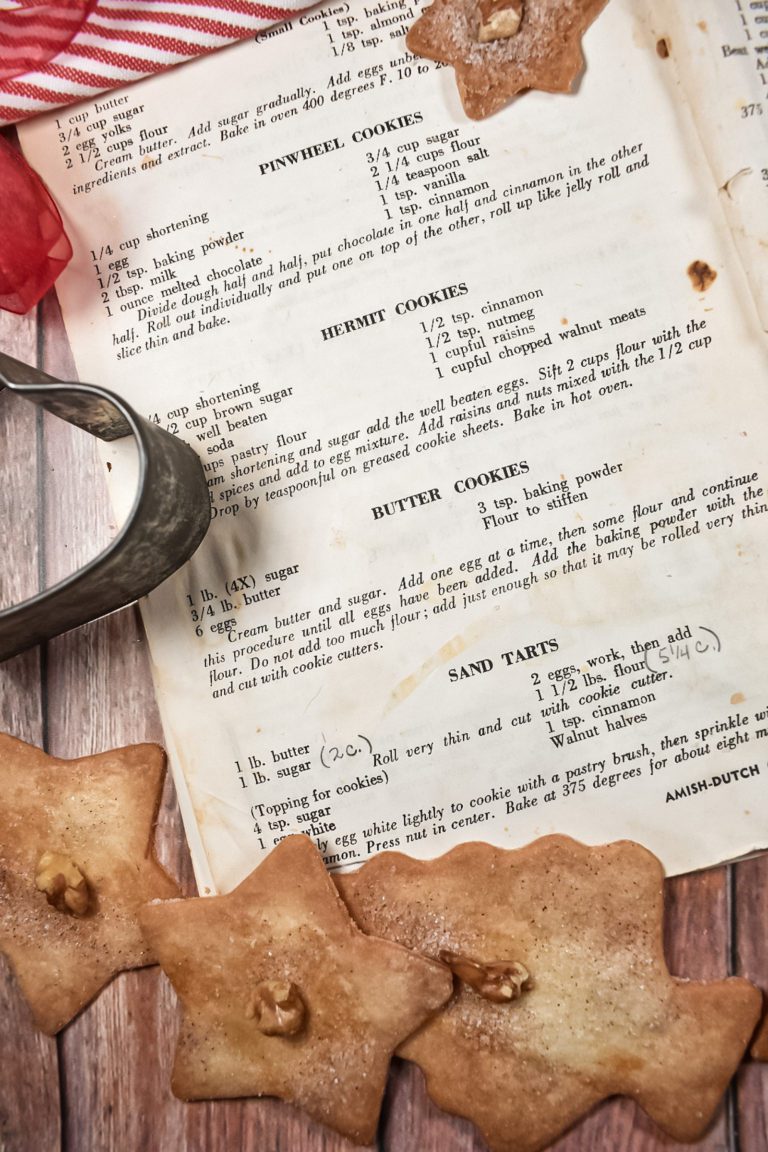 (Small Cookies)
1 tsp. baking
1 tsp. almond
1/8 tsp. salt
1 cup butter
3/4 cup sugar
2 egg yolks
2 1/2 cups flour
Cream butter. Add sugar gradually. Add eggs
ingredients and extract. Bake in oven 400 degrees F. 10 to
PINWHEEL COOKIES
3/4 cup sugar
2 1/4 cups flour
1/4 teaspoon salt
1 tsp. vanilla
1 tsp. cinnamon
1/4 cup shortening
1 egg
1/2 tsp. baking powder
2 tbsp. milk
1 ounce melted chocolate
Divide dough half and half, put chocolate in one half and cinnamon in the other
half. Roll out individually and put one on top of the other, roll up like jelly roll and
slice thin and bake.
HERMIT COOKIES
1/2 tsp. cinnamon
1/2 tsp. nutmeg
1 cupful raisins
1 cupful chopped walnut meats
/4 cup shortening
/2 cup brown sugar
well beaten
soda
ups pastry flour
am shortening and sugar add the well beaten eggs. Sift 2 cups flour with the
spices and add to egg mixture. Add raisins and nuts mixed with the 1/2 cup
Drop by teaspoonful on greased cookie sheets. Bake in hot oven.
BUTTER COOKIES
3 tsp. baking powder
Flour to stiffen
1 lb. (4X) sugar
3/4 lb. butter
6 eggs
Cream butter and sugar. Add one egg at a time, then some flour and continue
this procedure until all eggs have been added. Add the baking powder with the
flour. Do not add too much flour; add just enough so that it may be rolled very thin
and cut with cookie cutters.
SAND TARTS
2 eggs, work, then add
1 1/2 lbs. flour (5 1/4 c.)
1 lb. butter
1 lb. sugar (2c.)
Roll very thin and cut with cookie cutter.
(Topping for cookies)
1 tsp. cinnamon
Walnut halves
4 tsp. sugar
1 egg white
ly egg white lightly to cookie with a pastry brush, then sprinkle
mon. Press nut in center. Bake at 375 degrees for about eight
AMISH-DUTCH
375